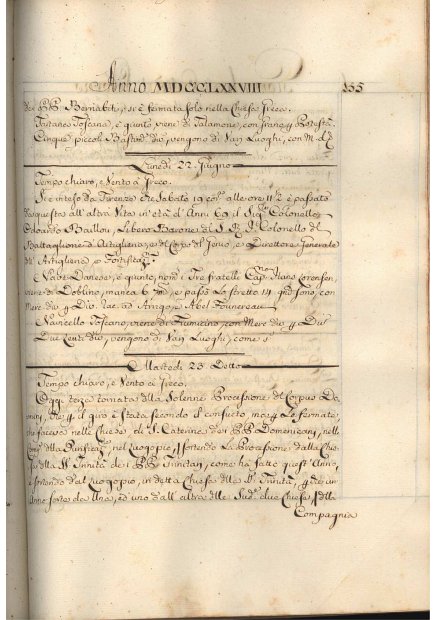 Anno MDCCLXXVIII 155
dei PP. Bernabiti, e si è fermata solo nella Chiesa Greca.
Tartana Toscana, è giunta, viene di Talamone, con Grano, 
Cinque piccoli Bastim. div. vengono di Varj Luoghi, con M. d.
Lunedi 22. Giugno
Tempo chiaro, e Vento à Greco.
Si è inteso da Firenze che Sabato 19 cor. alle ore 11 è passato
da questa all'altra Vita in età d'Anni 69 il Sig. Colonello
Odoardo Baillou, Libero Barone del S. R. I. Colonello del
Battaglione d'Artiglieria, e del Corpo del Genio, e Direttore Generale
d'Artiglieria, e Fortificaz.
Nave Danese, è giunta, nom. i Tre fratelli Cap. Hans
viene di Doblino, manca 6 m. e passò Lo stretto 14 g. sono, con
Merc. div. rac. ad Arrigo, e Abel Founereau
Navicello Toscano, viene di Fiumicino, con Merc. div. 
Due div. vengono di Varj Luoghi, come s.
Martedi 23 Detto
Tempo chiaro, e Vento à Greco.
Oggi terza tornata della Solenne Processione del Corpus Do-
mini, il giro è stata secondo il consueto, ma Le fermate
che faceva nelle Chiese di S. Caterina dei PP. Domenicani, nella
della Purificaz. nel Luogopio, sortendo La Processione dalla Chie-
sa della SS. Trinità de i PP. Trinitarj, come hà fatto quest'Anno,
e sortendo dal Luogopio, in detta Chiesa della SS. Trinità,
Anno sorte da Una, ed uno d'all'altra delle Sud. due Chiese, della
Compagnia